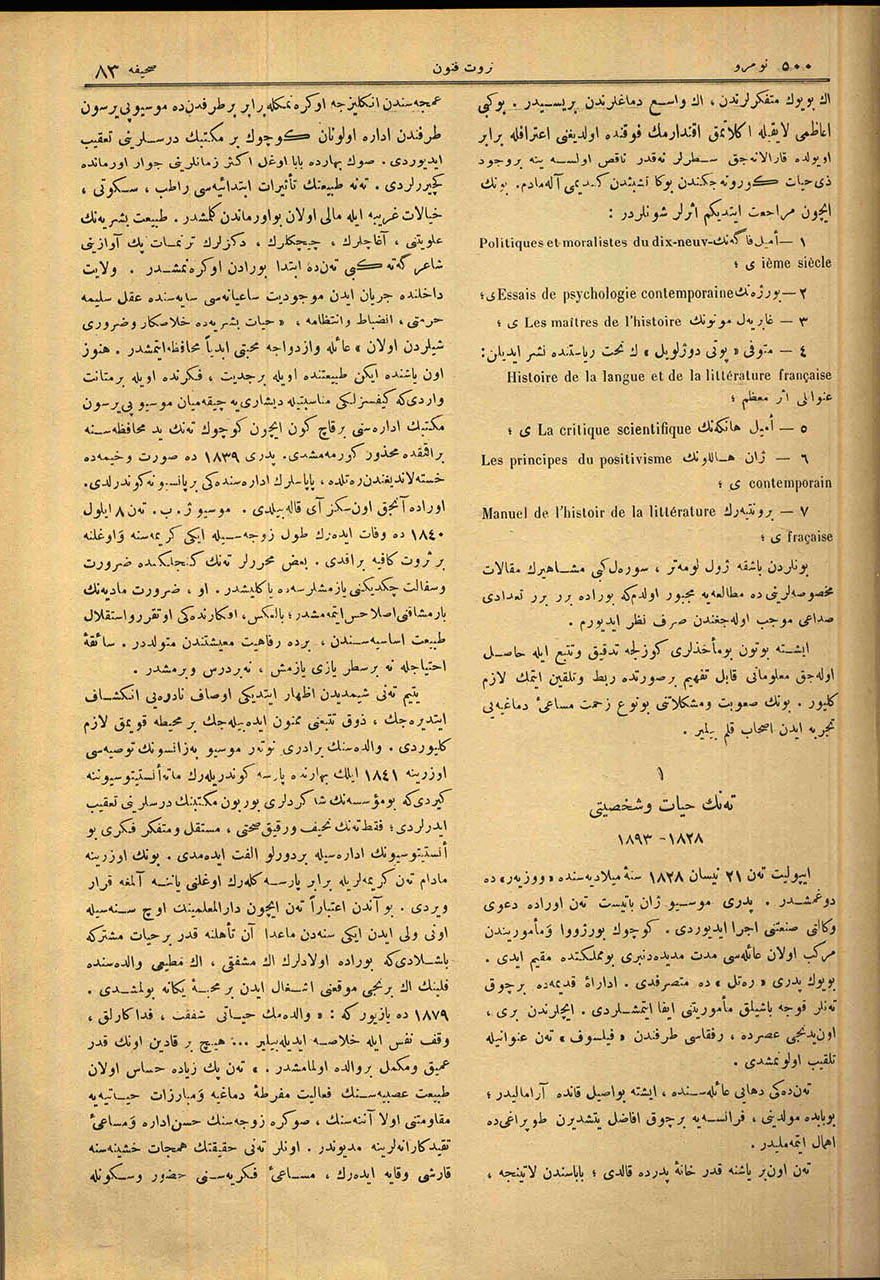 ٥٠٠ نومرو
ثروت فنون
صحیفه ٨٣
اك بویوك متفكرلرندن ، اك واسع دماغلرندن بریسیدر . بوكبی
اعاظمی لایقیله اكلاتمق اقتدارمك فوقنده اولدیغنی اعترافله برابر
اویولده قارالانه‌جق سطرلر نه‌قدر ناقص اولسه ینه بروجود
ذی حیات كورونه‌جكندن بوكا تشبثدن كندیمی آله‌مادم. بونك
ایچون مراجعت ایتدیكم اثرلر شونلردر :
١ —أمیل فاگه‌نك Politiques et moralistes du dix-neuv-
ième siècle ی ؛
٢ —بورژه‌نك Essais de psychologie contemporaine ی؛
٣ — غابریه‌ل مونونك Les maîtres de l'histoire ی ؛
٤ — متوفی « پوتی دوژلویل » ك تحت ریاستنده نشر ایدیلن:
Histoire de la langue et de la littérature française
عنوانلی اثر معظم ؛
٥ — أمیل هانكه‌نك La critique scientifique ی ؛
٦ — ژان هاللونك Les principes du positivisme
contemporain ی ؛
٧ — برونتیه‌رك Manuel de l'histoir de la littérature
fraçaise ی ؛
بونلردن باشقه ژول لومه‌تر ، سوره‌ل كبی مشاهیرك مقالات
مخصوصه‌لرینی ده مطالعه‌یه مجبور اولدم كه بوراده برر برر تعدادی
صداعی موجب اوله‌جغندن صرف نظر ایدیورم .
ایشته بوتون بومأخذلری كوزلجه تدقیق وتتبع ایله حاصل
اوله‌جق معلوماتی قابل تفهیم برصورتده ربط وتلقین ایتمك لازم
كلیور . بونك صعوبت ومشكلاتنی بونوع زحمت مساعیٔ دماغیه‌یی
تجربه ایدن اصحاب قلم بیلیر .
١
ته‌نك حیات وشخصیتی
١٨٢٨- ١٨٩٣
ایپولیت ته‌ن ٢١ نیسان ١٨٢٨ سنهٔ میلادیه‌سنده «ووزیه‌ر» ده
دوغمشدر . پدری موسیو ژان باتیست ته‌ن اوراده دعوی
وكالتی صنعتنی اجرا ایدیوردی . كوچوك بورژووا ومأموریندن
مركب اولان عائله‌سی مدت مدیده‌دنبری بومملكتده مقیم ایدی .
بویوك پدری « ره‌تل » ده متصرفدی . ادارهٔ قدیمه‌ده برچوق
ته‌نلر قوجه باشیلق مأموریتی ایفا ایتمشلردی . ایچلرندن بری ،
اون‌یدنجی عصرده ، رفقاسی طرفندن « فیلسوف » ته‌ن عنوانیله
تلقیب اولونمشدی .
ته‌نده‌كی دهایی عائله‌سنده ، ایشته بواصیل قانده آرامالیدر ؛
بوبابده مولدینی ، فرانسه‌یه برچوق افاضل یتشدیرن طوپراغی‌ده
اهمال ایتمه‌ملیدر .
ته‌ن اون‌بر یاشنه قدر خانهٔ پدرده قالدی ؛ باباسندن لاتینجه ،
عمجه‌سندن انكلیزجه اوكره‌نمكله برابر برطرفدن‌ده موسیو پی‌یرسون
طرفندن اداره اولونان كوچوك بر مكتبك درسلرینی تعقیب
ایدیوردی . صوك بهارده بابا اوغل اكثر زمانلرینی جوار اورمانده
كچیررلردی . ته‌نه طبیعتك تأثیرات ابتدائیه‌سی راطب ، سكوتی ،
خیالات غریبه ایله مالی اولان بواورماندن كلمشدر . طبیعت بشریه‌نك
علویتنی ، آغاچلرك ، چیچكلرك ، دكزلرك ترنمات پك آوازینی
شاعر گه‌ته كبی ته‌ن‌ده ابتدا بورادن اوكره‌نمشدر . ولایت
داخلنده جریان ایدن موجودیت ساعیانه‌سی سایه‌سنده عقل سلیمه
حرمتی ، انضباط وانتظامه ، « حیات بشریه‌ده خلاصكار وضروری
شیلردن اولان » عائله وازدواجه محبتی ابدیاً محافظه‌ایتمشدر . هنوز
اون یاشنده ایكن طبیعتنده اویله برجدیت ، فكرنده اویله برمتانت
واردی‌كه كیفسزلكی مناسبتیله دیشاری‌یه چیقه‌میان موسیو پی‌یرسون
مكتبك اداره‌سنی برقاچ كون ایچون كوچوك ته‌نك ید محافظه‌سنه
براقمقده محذور كورمه‌مشدی. پدری ١٨٣٩ ده صورت وخیمه‌ده
خسته‌لاندیغندن ره‌تلده ، پاپاسلرك اداره‌سنده‌كی برپانسیونه كوندرلدی.
اوراده آنجق اون‌سكز آی قاله‌بیلدی . موسیو ژ. ب. ته‌ن ٨ ایلول
١٨٤٠ ده وفات ایده‌رك طول زوجه‌سیله ایكی كریمه‌سنه واوغلنه
بر ثروت كافیه براقدی . بعض محررلر ته‌نك كنجلكنده ضرورت
وسفالت چكدیكنی یازمشلرسه‌ده یاكلیشدر . او ، ضرورت مادیه‌نك
بارمشاقنی اصلا حس ایتمه‌مشدر ؛ بالعكس، افكارنده‌كی او تقرر واستقلال
طبیعت اساسیه‌سندن ، برده رفاهیت معیشتندن متولددر . سائقهٔ
احتیاجله نه برسطر یازی یازمش ، نه‌بردرس ویرمشدر .
یتیم ته‌نی شیمدیدن اظهار ایتدیكی اوصاف نادره‌یی انكشاف
ایتدیره‌جك ، ذوق تتبعنی ممنون ایده‌بیله‌جك بر محیطه قویمق لازم
كلیوردی . والده‌سنك برادری نوته‌ر موسیو به‌زانسونك توصیه‌سی
اوزرینه ١٨٤١ ایلك بهارنده پارسه كوندریله‌رك ماته أنستیتوسیوننه
كیردی‌كه بومؤسسه‌نك شاكردلری بوربون مكتبنك درسلرینی تعقیب
ایدرلردی ؛ فقط ته‌نك نحیف ورقیق صحتی ، مستقل ومتفكر فكری بو
أنستیتوسیونك اداره‌سیله بردورلو الفت ایده‌مدی . بونك اوزرینه
مادام ته‌ن كریمه‌لریله برابر پارسه كله‌رك اوغلنی یاننه آلمغه قرار
ویردی . بوآندن اعتباراً ته‌ن ایچون دارالمعلمینك اوچ سنه‌سیله
اونی ولی ایدن ایكی سنه‌دن ماعدا آن تأهلنه قدر بر حیات مشتركه
باشلادی‌كه بوراده اولادلرك اك مشفقی ، اك مطیعی والده‌سنده
قلبنك اك برنجی موقعنی اشغال ایدن بر محبهٔ یكانه بولمشدی .
١٨٧٩ ده یازیور كه : « والده‌مك حیاتی شفقت ، فداكارلق ،
وقف نفس ایله خلاصه ایدیله‌بیلیر ... هیچ بر قادین اونك قدر
عمیق ومكمل بروالده اولمامشدر . » ته‌نك پك زیاده حساس اولان
طبیعت عصبیه‌سنك فعالیت مفرطهٔ دماغیه ومبارزات حیاتیه‌یه
مقاومتنی اولا آننه‌سنك ، صوكره زوجه‌سنك حسن اداره ومساعیٔ
تقیدكارانه‌لرینه مدیوندر . اونلر ته‌نی حقیقتك همجات خشینه‌سنه
قارشی وقایه ایده‌رك ، مساعیٔ فكریه‌سنی حضور وسكونله